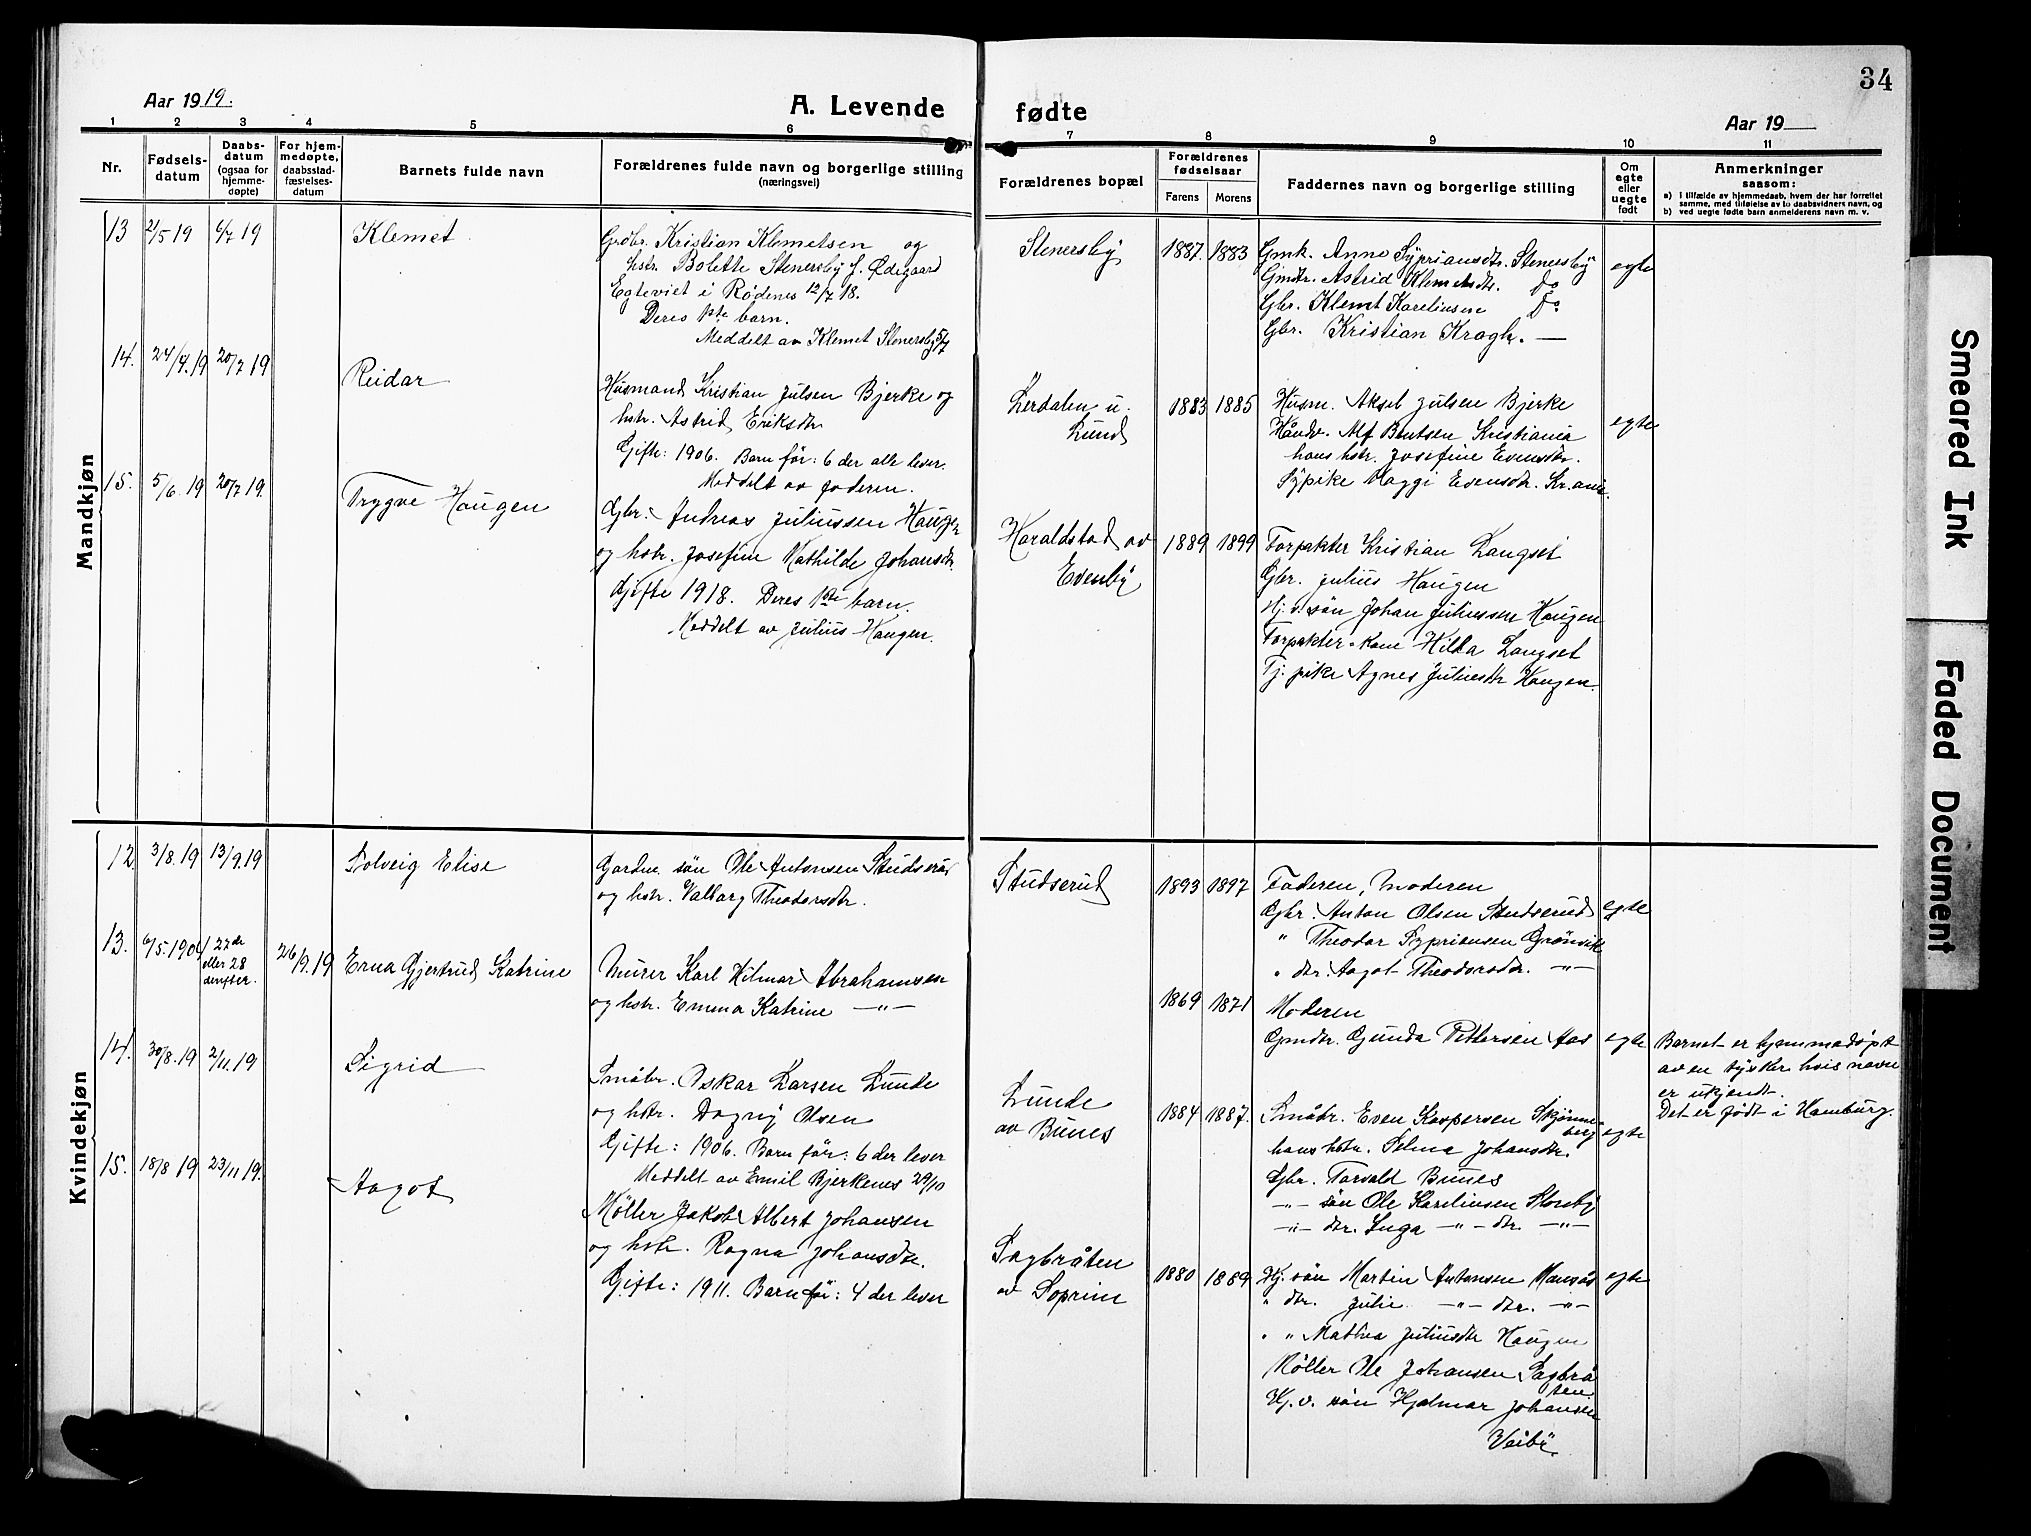 34
Aar 1919.
A. Levende fødte
Aar 19
1 2 3 4 5 6 7 8 9 10 11
Nr.
Fødsels-
datum
Daabs-
datum
(ogsaa for
hjemme-
døpte)
For hjem-
medøpte,
daabsstad-
fæstelses-
datum
Barnets fulde navn
Forældrenes fulde navn og borgerlige stilling
(næringsvei)
Forældrenes bopæl
Forældrenes
fødselsaar
Farens Morens
Faddernes navn og borgerlige stilling
Om
egte
eller
uegte
født
Anmerkninger
saasom:
a) i tilfælde av hjemmedaab, hvem der har forrettet
samme, med tilføielse av to daabsvidners navn, og
b) ved uegte fødte barn anmelderens navn m. v.
Mandkjøn
13 2/5 19 6/7 19 Klemet
Grdbr. Kristian Klemetsen og
hstr. Bolette Stenersby f. Ødegaard
Egteviet i Rødenes 12/7 18.
Deres 1ste barn.
Meddelt av Klemet Stenersby 5/7
Stenersby
1887. 1883
Gmk. Anne Sypriansdtr. Stenersby
Gmdtr. Astrid Klemetsdtr. do
Gbr. Klemet Karelinsen do
Gbr. Kristian Kragh. —
egte
14. 24/4.19 20/7 19 Reidar
Husmand Kristian Julsen Bjerke og
hstr. Astrid Eriksdtr
Gifte: 1906. Barn før: 6 der alle lever.
Meddelt av faderen.
Lerdalen u.
Lund
1883 1885
Husm. Aksel Julsen Bjerke
Håndv. Alf Bentsen Kristiania
hans hstr. Josefine Evensdtr.
Sypike Maggi Evensdtr. Kr.ania.
egte
15. 5/6.19 20/7 19. Trygve Haugen
Gbr. Andreas Juliussen Haugen
og hstr. Josefine Mathilde Johansdtr.
Gifte 1918. Deres 1ste barn.
Meddelt av Julius Haugen.
Haraldstad av
Evenby
1889 1899
Forpakter Kristian Langset
Gbr. Julius Haugen
Hj. v. søn Johan Juliussen Haugen
Forpakter-kone Hilda Langset
Tj. pike Agnes Juliusdtr Haugen.
Kvindekjøn
12 3/8.19 13/9.19 Solveig Elise
Gardm. søn Ole Antonsen Studserud
og hstr. Valborg Theodorsdtr.
Studserud
1893 1897
Faderen, Moderen
Gbr. Anton Olsen Studserud
" Theodor Sypriansen Grønvik
" dtr. Aagot Theodorsdtr. —"—
egte
13. 6/5.1906 27de
eller 28
derefter.
26/9.19 Erna Gjertrud Katrine
Murer Karl Hilmar Abrahamsen
og hstr. Emma Katrine —"—
1869 1871
Moderen
Gmdtr. Gunda Pettersen Aas
egte
Barnet er hjemmedøpt
av en tysker hvis navn
er ukjendt.
Det er født i Hamburg.
14. 30/8.19 2/11.19 Sigrid
Småbr. Oskar Larsen Lunde
og hstr. Dagny Olsen
Gifte: 1906. Barn før: 6 der lever
Meddelt av Emil Bjerkenes 29/10
Lunde
av Bunes
1884 1887.
Småbr. Even Kaspersen Skjønne-
berg
hans hstr. Selma Johansdtr.
Gbr. Torvald Bunes
—"— søn Ole Karelinsen Stensby
—"— dtr. Inga —"— dtr. —"—
egte
15. 18/8 19 23/11 19. Aagot
Møller Jakob Albert Johansen
og hstr. Ragna Johansdtr.
Gifte: 1911. Barn før: 4 der lever
Sagbråten
av Soprim
1880 1889
Hj. søn Martin Antonsen Hansås
" dtr. Julie —"— dtr. —"—
" " Mathea Juliusdtr Haugen
Møller Ole Johansen Sagbrå
ten
Hj. v. søn Hjalmar Johansen
Veiby
egte
Smeared Ink
Faded Document